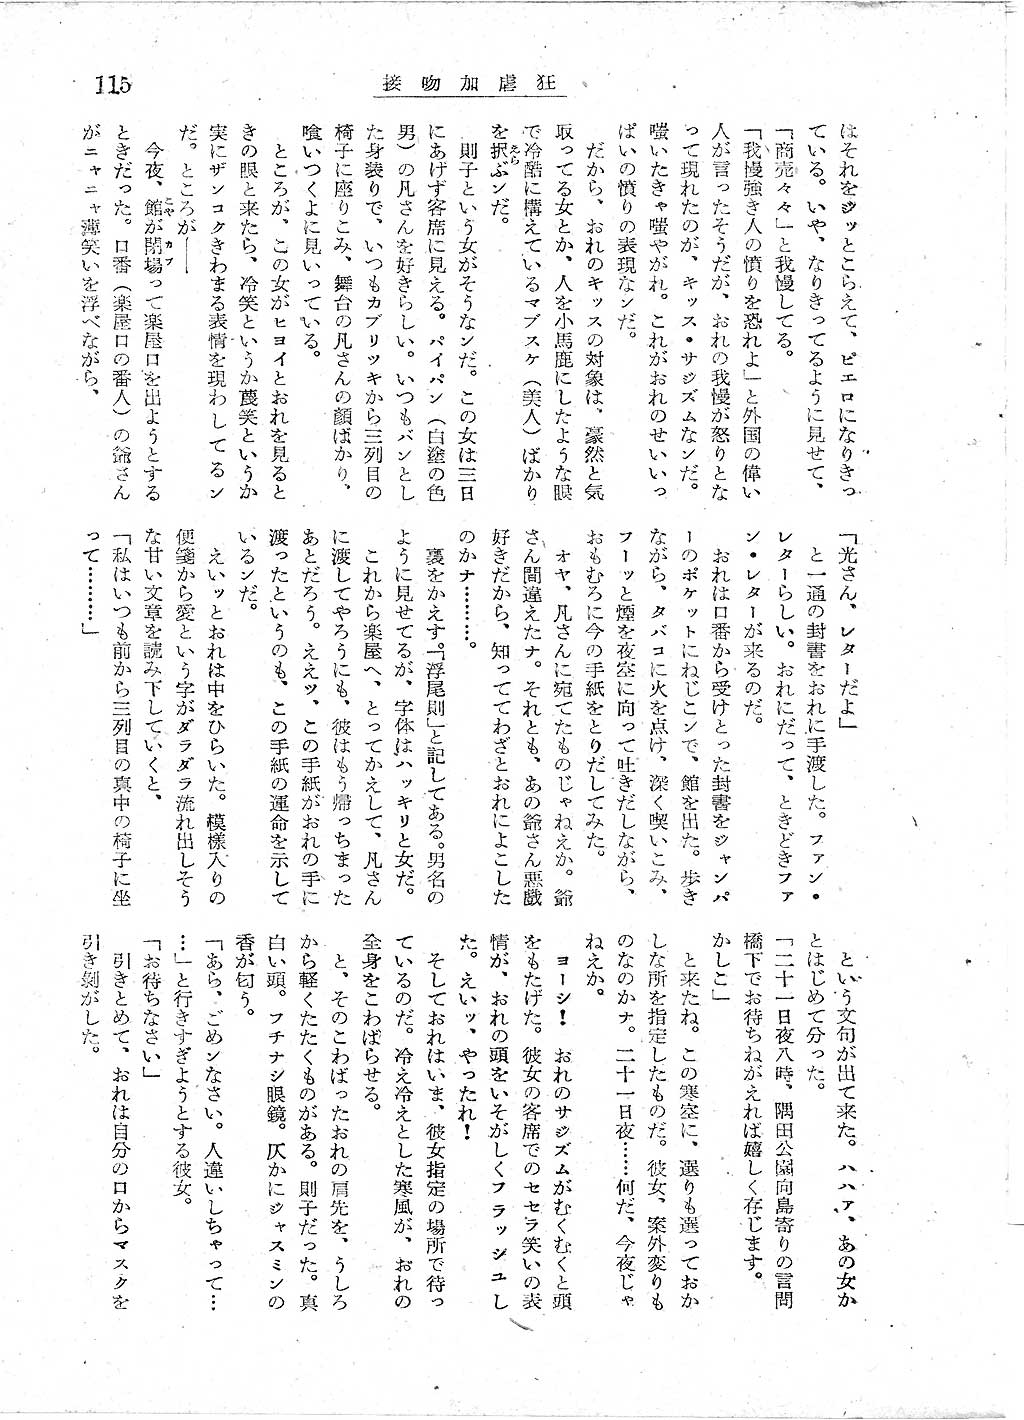 115
接吻加虐狂
はそれをジッとこらえて、ピエロになりきっ
ている。いや、なりきってるように見せて、
「商売々々」と我慢してる。
「我慢強き人の憤りを恐れよ」と外国の偉い
人が言ったそうだが、おれの我慢が怒りとな
って現れたのが、キッス・サジズムなンだ。
嗤いたきゃ嗤やがれ。これがおれのせいいっ
ぱいの憤りの表現なンだ。
だから、おれのキッスの対象は、豪然と気
取ってる女とか、人を小馬鹿にしたような眼
で冷酷に構えているマブスケ（美人）ばかり
を択ぶンだ。
則子という女がそうなンだ。この女は三日
にあげず客席に見える。パイパン（白塗の色
男）の凡さんを好きらしい。いつもバンとし
た身装りで、いつもカブリッキから三列目の
椅子に座りこみ、舞台の凡さんの顔ばかり、
喰いつくよに見いっている。
ところが、この女がヒョイとおれを見ると
きの眼と来たら、冷笑というか蔑笑というか
実にザンコクきわまる表情を現わしてるン
だ。ところが――
今夜、館が閉場って楽屋口を出ようとする
ときだった。口番（楽屋口の番人）の爺さん
がニャニャ薄笑いを浮べながら、
「光さん、レターだよ」
と一通の封書をおれに手渡した。ファン・
レターらしい。おれにだって、ときどきファ
ン・レターが来るのだ。
おれは口番から受けとった封書をジャンパ
ーのポケットにねじこンで、館を出た。歩き
ながら、タバコに火を点け、深く喫いこみ、
フーッと煙を夜空に向って吐きだしながら、
おもむろに今の手紙をとりだしてみた。
オヤ、凡さんに宛てたものじゃねえか。爺
さん間違えたナ。それとも、あの爺さん悪戯
好きだから、知っててわざとおれによこした
のかナ………。
裏をかえす。「浮尾則」と記してある。男名の
ように見せてるが、字体はハッキリと女だ。
これから楽屋へ、とってかえして、凡さん
に渡してやろうにも、彼はもう帰っちまった
あとだろう。ええッ、この手紙がおれの手に
渡ったというのも、この手紙の運命を示して
いるンだ。
えいッとおれは中をひらいた。模様入りの
便箋から愛という字がダラダラ流れ出しそう
な甘い文章を読み下していくと、
「私はいつも前から三列目の真中の椅子に坐
って………」
という文句が出て来た。ハハァ、あの女か
とはじめて分った。
「二十一日夜八時、隅田公園向島寄りの言問
橋下でお待ちねがえれば嬉しく存じます。
かしこ」
と来たね。この寒空に、選りも選っておか
しな所を指定したものだ。彼女、案外変りも
のなのかナ。二十一日夜……何だ、今夜じゃ
ねえか。
ヨーシ！　おれのサジズムがむくむくと頭
をもたげた。彼女の客席でのセセラ笑いの表
情が、おれの頭をいそがしくフラッシュし
た。えいッ、やったれ！
そしておれはいま、彼女指定の場所で待っ
ているのだ。冷え冷えとした寒風が、おれの
全身をこわばらせる。
と、そのこわばったおれの肩先を、うしろ
から軽くたたくものがある。則子だった。真
白い頭。フチナシ眼鏡。仄かにジャスミンの
香が匂う。
「あら、ごめンなさい。人違いしちゃって…
…」と行きすぎようとする彼女。
「お待ちなさい」
引きとめて、おれは自分の口からマスクを
引き剝がした。